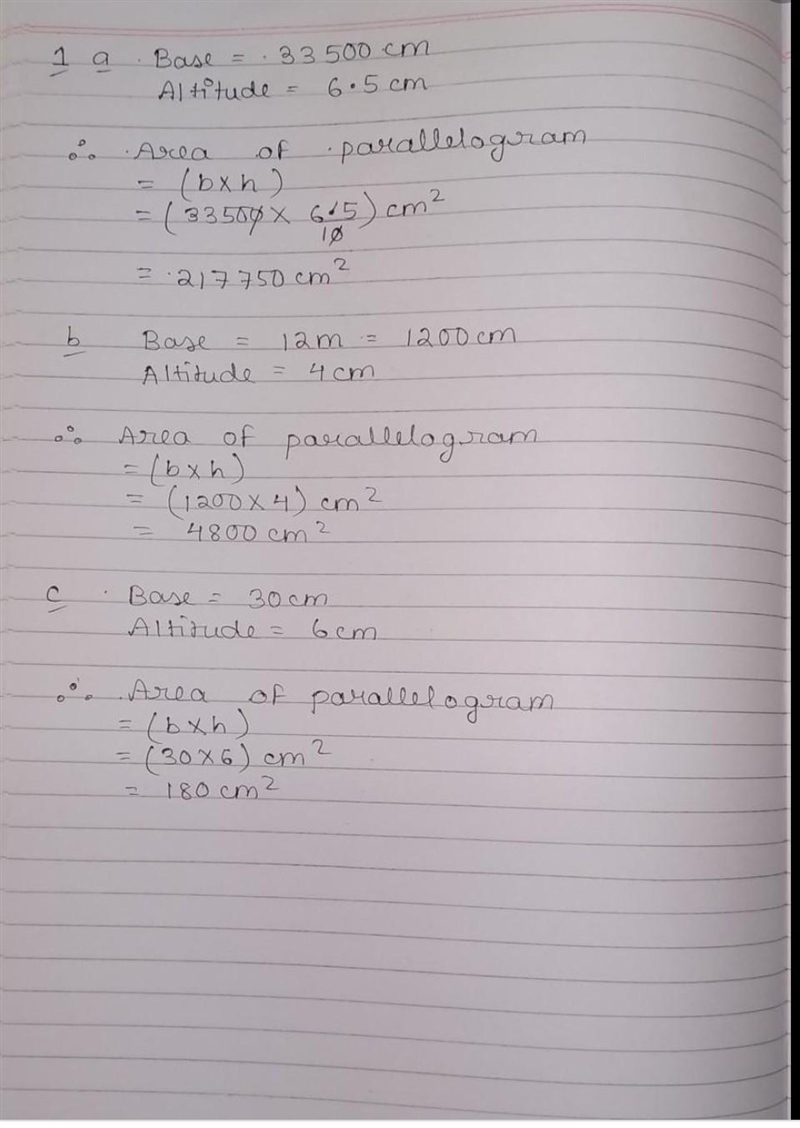 1 a . Base = .33500 cm
Altitude = 6.5 cm
∴ .Area of .parallelogram
= (b×h)
= (33500 × 6.5) cm²
10
= .217750 cm²
b Base = 12m = 1200 cm
Altitude = 4 cm
∴ Area of parallelogram
= (b×h)
= (1200×4) cm²
= 4800 cm²
c . Base = 30 cm
Altitude = 6 cm
∴ .Area of parallelogram
= (b×h)
= (30×6) cm²
= 180 cm²